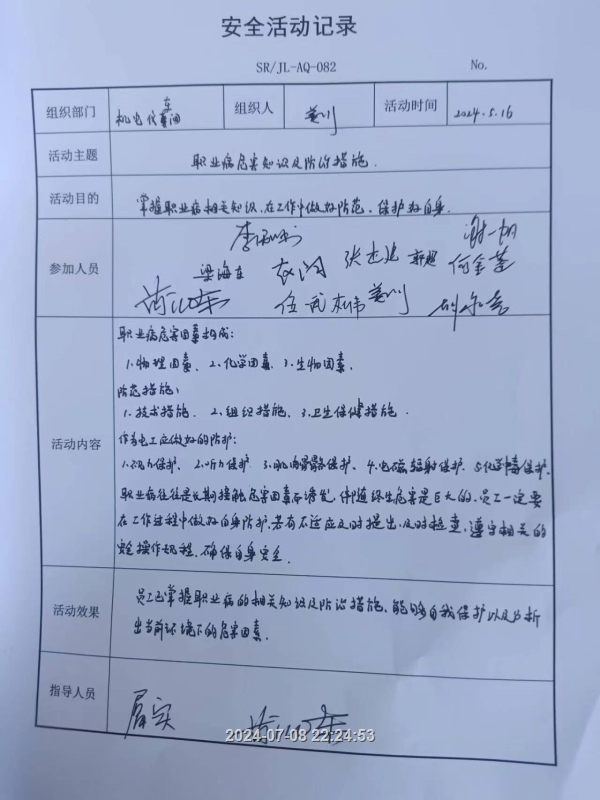 安全活动记录
SR/JL-AQ-082 No.
组织部门 组织人 活动时间 2024.5.16
活动主题 职业病危害知识及防治措施.
活动目的 掌握职业病相关知识,在工作中做好防范,保护好自身.
参加人员
梁海
张
任武
活动内容
职业病危害因素构成:
1.物理因素, 2.化学因素, 3.生物因素,
防范措施:
1.技术措施. 2.组织措施. 3.卫生保健措施.
作为电工应做好的防护:
1.视力保护. 2.听力保护. 3.肌肉骨骼保护. 4.电磁辐射保护. 5.化学中毒保护.
职业病往往是长期接触危害因素而诱发,伴随终生危害是巨大的,员工一定要
在工作过程中做好自身防护,若有不适应及时提出,及时检查,遵守相关的
安全操作规程,确保自身安全.
活动效果
员工已掌握职业病的相关知识及防治措施,能够自我保护以及分析
出当前环境下的危害因素.
指导人员
属实
2024-07-08 22:24:53